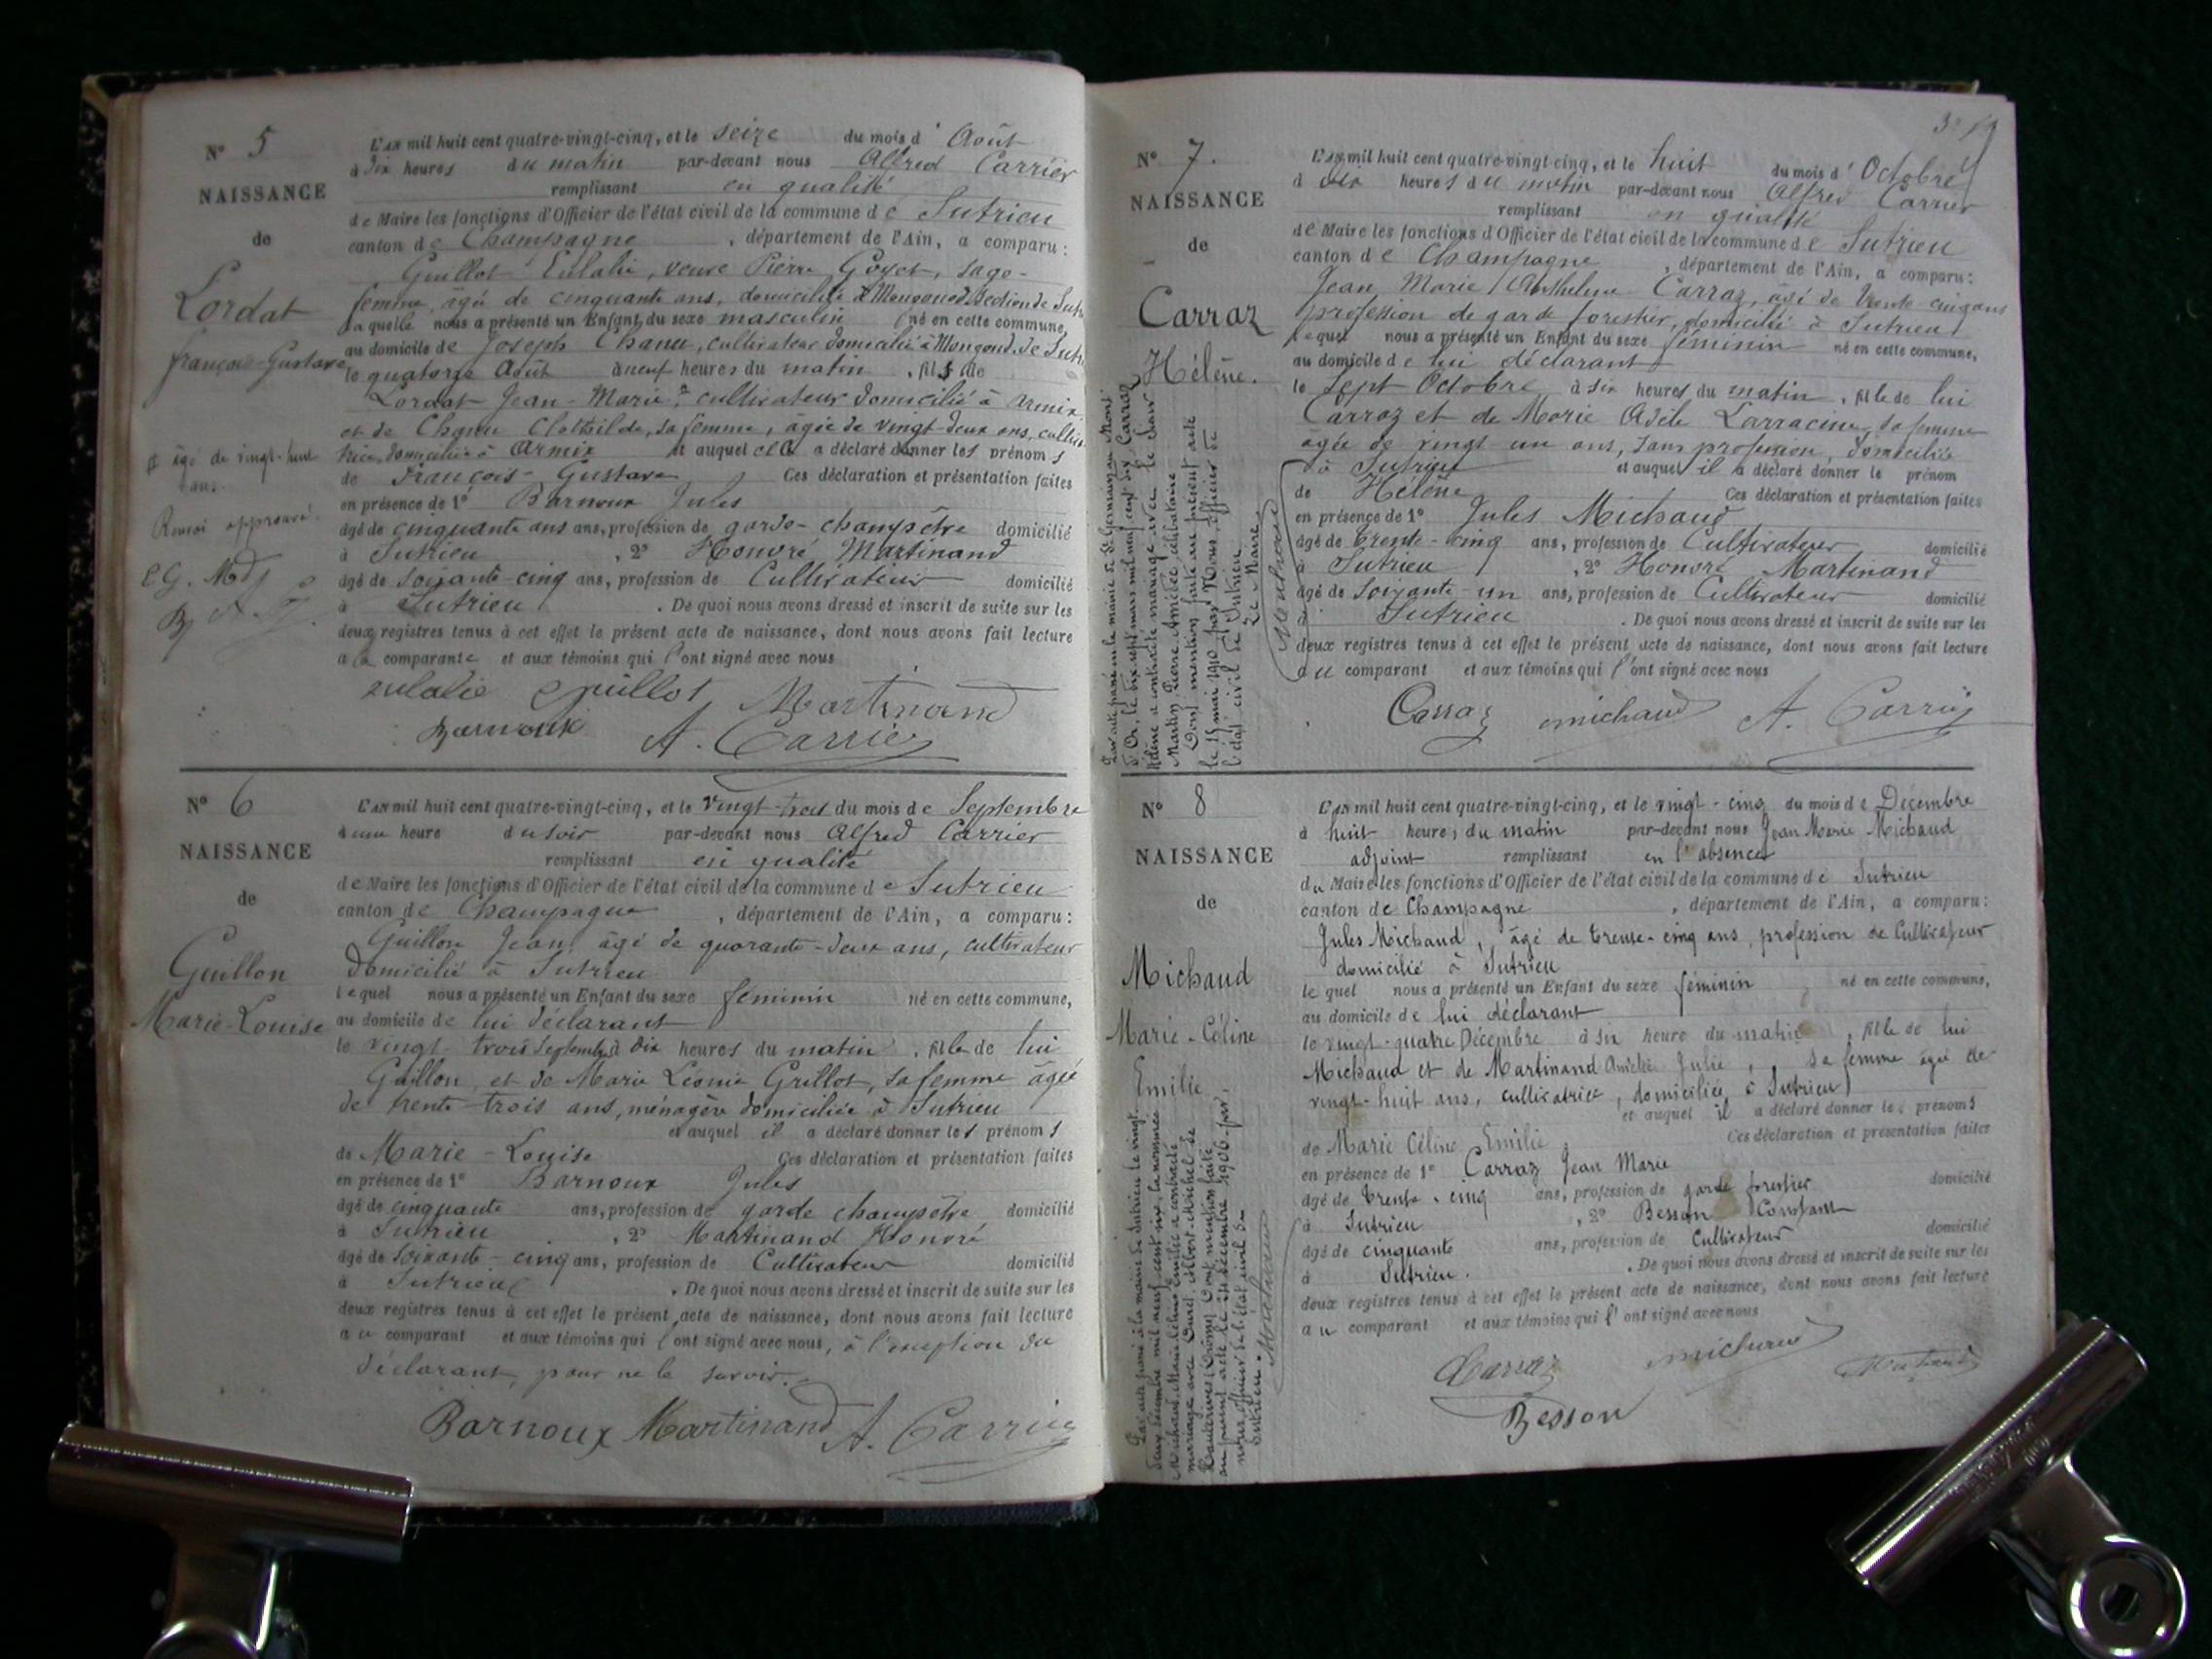 N° 5
NAISSANCE
de
Lordat
François-Gustave
L'an mil huit cent quatre-vingt-cinq, et le seize du mois d' Août
à dix heures du matin par-devant nous Alfred Carrier
remplissant en qualité
de Maire les fonctions d'Officier de l'état civil de la commune de Sutrieu
canton de Champagne, département de l'Ain, a comparu:
Guillot Eulalie, veuve Pierre Goyet, sage-
femme, âgée de cinquante ans, domiciliée à Mongonod, section de Sut
laquelle nous a présenté un Enfant du sexe masculin né en cette commune,
au domicile de Joseph Chanu, cultivateur domicilié à Mongonod, de Sut
le quatorze Août à neuf heures du matin, fils de
Lordat Jean-Marie, cultivateur domicilié à Armix,
et de Chanu Clothilde, sa femme, âgée de vingt-deux ans, culti
trice, domiciliée à Armix et auquel elle a déclaré donner les prénoms
de François-Gustave Ces déclaration et présentation faites
en présence de 1° Barnoux Jules
âgé de cinquante ans ans, profession de garde-champêtre domicilié
à Sutrieu, 2° Honoré Martinand
âgé de soixante-cinq ans, profession de Cultivateur domicilié
à Sutrieu. De quoi nous avons dressé et inscrit de suite sur les
deux registres tenus à cet effet le présent acte de naissance, dont nous avons fait lecture
a la comparante et aux témoins qui l'ont signé avec nous
âgé de vingt-huit
ans.
Renvoi approuvé.
eulalie guillot Martinand
Barnoux A. Carrier
N° 6
NAISSANCE
de
Guillon
Marie-Louise
L'an mil huit cent quatre-vingt-cinq, et le vingt-trois du mois de Septembre
à une heure du soir par-devant nous Alfred Carrier
remplissant en qualité
de Maire les fonctions d'Officier de l'état civil de la commune de Sutrieu
canton de Champagne, département de l'Ain, a comparu:
Guillon Jean, âgé de quarante-deux ans, cultivateur
domicilié à Sutrieu
lequel nous a présenté un Enfant du sexe féminin né en cette commune,
au domicile de lui déclarant
le vingt-trois Septembre à dix heures du matin, fille de lui
Guillon, et de Marie Léonie Grillot, sa femme âgée
de trente-trois ans, ménagère domiciliée à Sutrieu
et auquel il a déclaré donner les prénoms
de Marie-Louise Ces déclaration et présentation faites
en présence de 1° Barnoux Jules
âgé de cinquante ans, profession de garde champêtre domicilié
à Sutrieu, 2° Martinand Honoré
âgé de soixante-cinq ans, profession de Cultivateur domicilié
à Sutrieu. De quoi nous avons dressé et inscrit de suite sur les
deux registres tenus à cet effet le présent acte de naissance, dont nous avons fait lecture
au comparant et aux témoins qui l'ont signé avec nous, à l'exception du
déclarant, pour ne le savoir.
Barnoux Martinand A. Carrier
N° 7.
NAISSANCE
de
Carraz
Hélène.
L'an mil huit cent quatre-vingt-cinq, et le huit du mois d' Octobre
à dix heures du matin par-devant nous Alfred Carrier
remplissant en qualité
de Maire les fonctions d'Officier de l'état civil de la commune de Sutrieu
canton de Champagne, département de l'Ain, a comparu:
Jean Marie Anthelme Carraz, âgé de trente-cinq ans
profession de garde forestier, domicilié à Sutrieu
lequel nous a présenté un Enfant du sexe féminin né en cette commune,
au domicile de lui déclarant
le sept Octobre à six heures du matin, fille de lui
Carraz et de Marie Adèle Larracine, sa femme
âgée de vingt un ans, sans profession, domiciliée
à Sutrieu et auquel il a déclaré donner le prénom
de Hélène Ces déclaration et présentation faites
en présence de 1° Jules Michaud
âgé de trente-cinq ans, profession de Cultivateur domicilié
à Sutrieu, 2° Honoré Martinand
âgé de soixante-un ans, profession de Cultivateur domicilié
à Sutrieu. De quoi nous avons dressé et inscrit de suite sur les
deux registres tenus à cet effet le présent acte de naissance, dont nous avons fait lecture
au comparant et aux témoins qui l'ont signé avec nous
Par acte passé en la mairie de St Germain au Mont
d'Or, le dix sept mars mil neuf cent dix Carraz
Hélène a contracté mariage avec le Sieur
Martin Pierre Amédée, célibataire
Dont mention faite au présent acte
le 15 mai 1910 par Nous officier de
l'état civil de Sutrieu.
Le Maire,
Carraz michaud A. Carrier
N° 8
NAISSANCE
de
Michaud
Marie-Céline
Emilie
L'an mil huit cent quatre-vingt-cinq, et le vingt-cinq du mois de Décembre
à huit heures du matin par-devant nous Jean Marie Michaud
adjoint remplissant en l'absence
du Maire les fonctions d'Officier de l'état civil de la commune de Sutrieu
canton de Champagne, département de l'Ain, a comparu:
Jules Michaud, âgé de trente-cinq ans, profession de Cultivateur
domicilié à Sutrieu
lequel nous a présenté un Enfant du sexe féminin né en cette commune,
au domicile de lui déclarant
le vingt-quatre Décembre à six heure du matin, fille de lui
Michaud et de Martinand Amélie Julie, sa femme âgée de
vingt-huit ans, cultivatrice, domiciliée à Sutrieu
et auquel il a déclaré donner les prénoms
de Marie Céline Emilie Ces déclaration et présentation faites
en présence de 1° Carraz Jean Marie
âgé de trente-cinq ans, profession de garde forestier domicilié
à Sutrieu, 2° Besson Constant
âgé de cinquante ans, profession de Cultivateur domicilié
à Sutrieu. De quoi nous avons dressé et inscrit de suite sur les
deux registres tenus à cet effet le présent acte de naissance, dont nous avons fait lecture
au comparant et aux témoins qui l'ont signé avec nous
Par acte passé à la mairie de Sutrieu le vingt
deux décembre mil neuf cent six, la nommée
Michaud Marie Céline Emilie a contracté
mariage avec Albert Michel de
Dont mention faite
au présent acte le décembre 1906 par
nous officier de l'état civil de
Sutrieu.
Carraz michaud
Besson